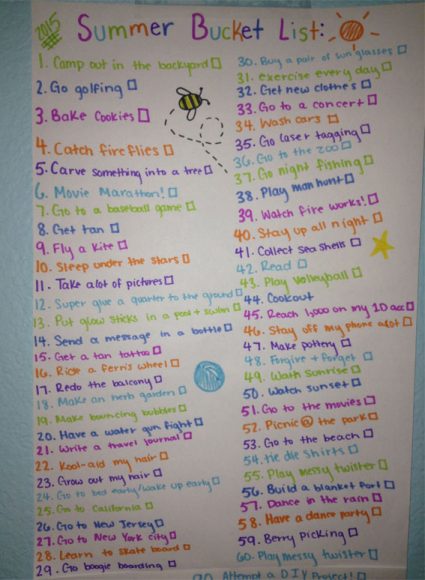 2015 Summer Bucket List:
1. Camp out in the backyard
2. Go golfing
3. Bake Cookies
4. Catch fireflies
5. Carve something into a tree
6. Movie Marathon!
7. Go to a baseball game
8. Get tan
9. Fly a kite
10. Sleep under the stars
11. Take alot of pictures
12. Super glue a quarter to the ground
13. Put glow sticks in a pool + swim
14. Send a message in a bottle
15. Get a tan tattoo
16. Ride a ferris wheel
17. Redo the balcony
18. Make an herb garden
19. Make bouncing bubbles
20. Have a water gun fight
21. Write a travel journal
22. Kool-aid my hair
23. Grow out my hair
24. Go to bed early/wake up early
25. Go to California
26. Go to New Jersey
27. Go to New York city
28. Learn to skate board
29. Go boogie boarding
30. Buy a pair of sunglasses
31. exercise every day
32. Get new clothes
33. Go to a concert
34. Wash cars
35. Go laser tagging
36. Go to the zoo
37. Go night fishing
38. Play man hunt
39. Watch fire works!
40. Stay up all night
41. Collect sea shells
42. Read
43. Play volleyball
44. Cookout
45. Reach 1,000 on my 1D acc
46. Stay off my phone alot
47. Make pottery
48. Forgive + forget
49. Wath sunrise
50. Watch sunset
51. Go to the movies
52. Picnic @ the park
53. Go to the beach
54. tie die shirts
55. Play messy twister
56. Build a blanket fort
57. Dance in the rain
58. Have a dance party
59. Berry Picking
60. Play messy twister
Attempt a DIY project!